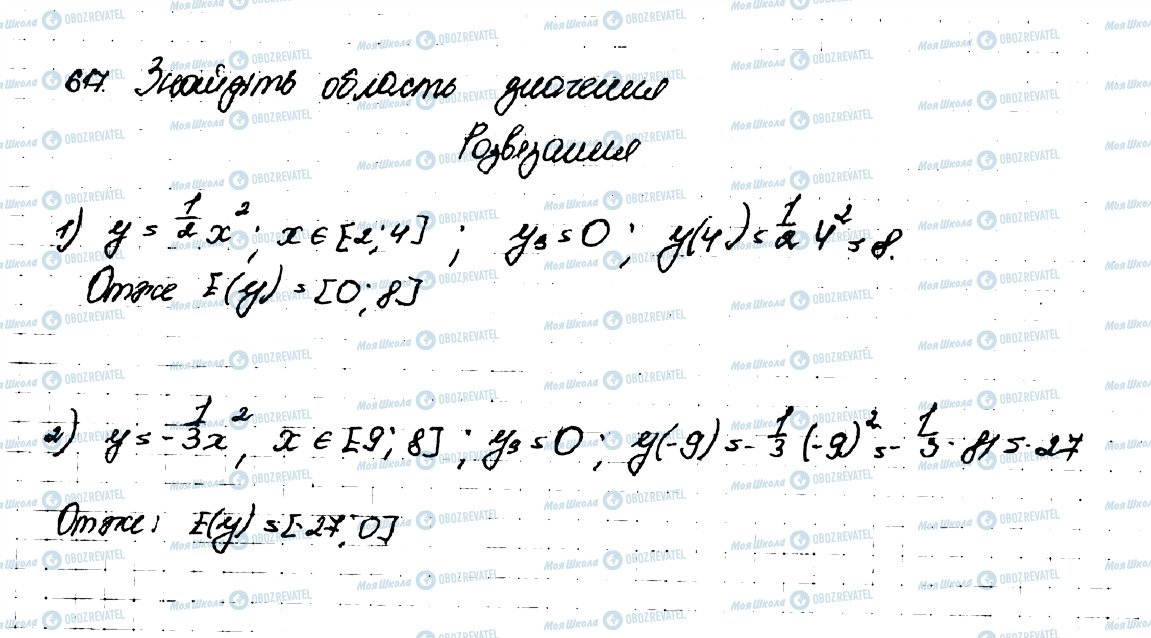 617. Знайдіть область значення
Розвязання
1) y = 1/2 x², x ∈ [2; 4] ; yв = 0 ; y(4) = 1/2 4² = 8.
Отже E(y) = [0; 8]
2) y = -1/3 x², x ∈ [-9; 8] ; yв = 0 ; y(-9) = -1/3 (-9)² = -1/3 · 81 = -27
Отже: E(y) = [-27; 0]
МояШкола OBOZREVATEL